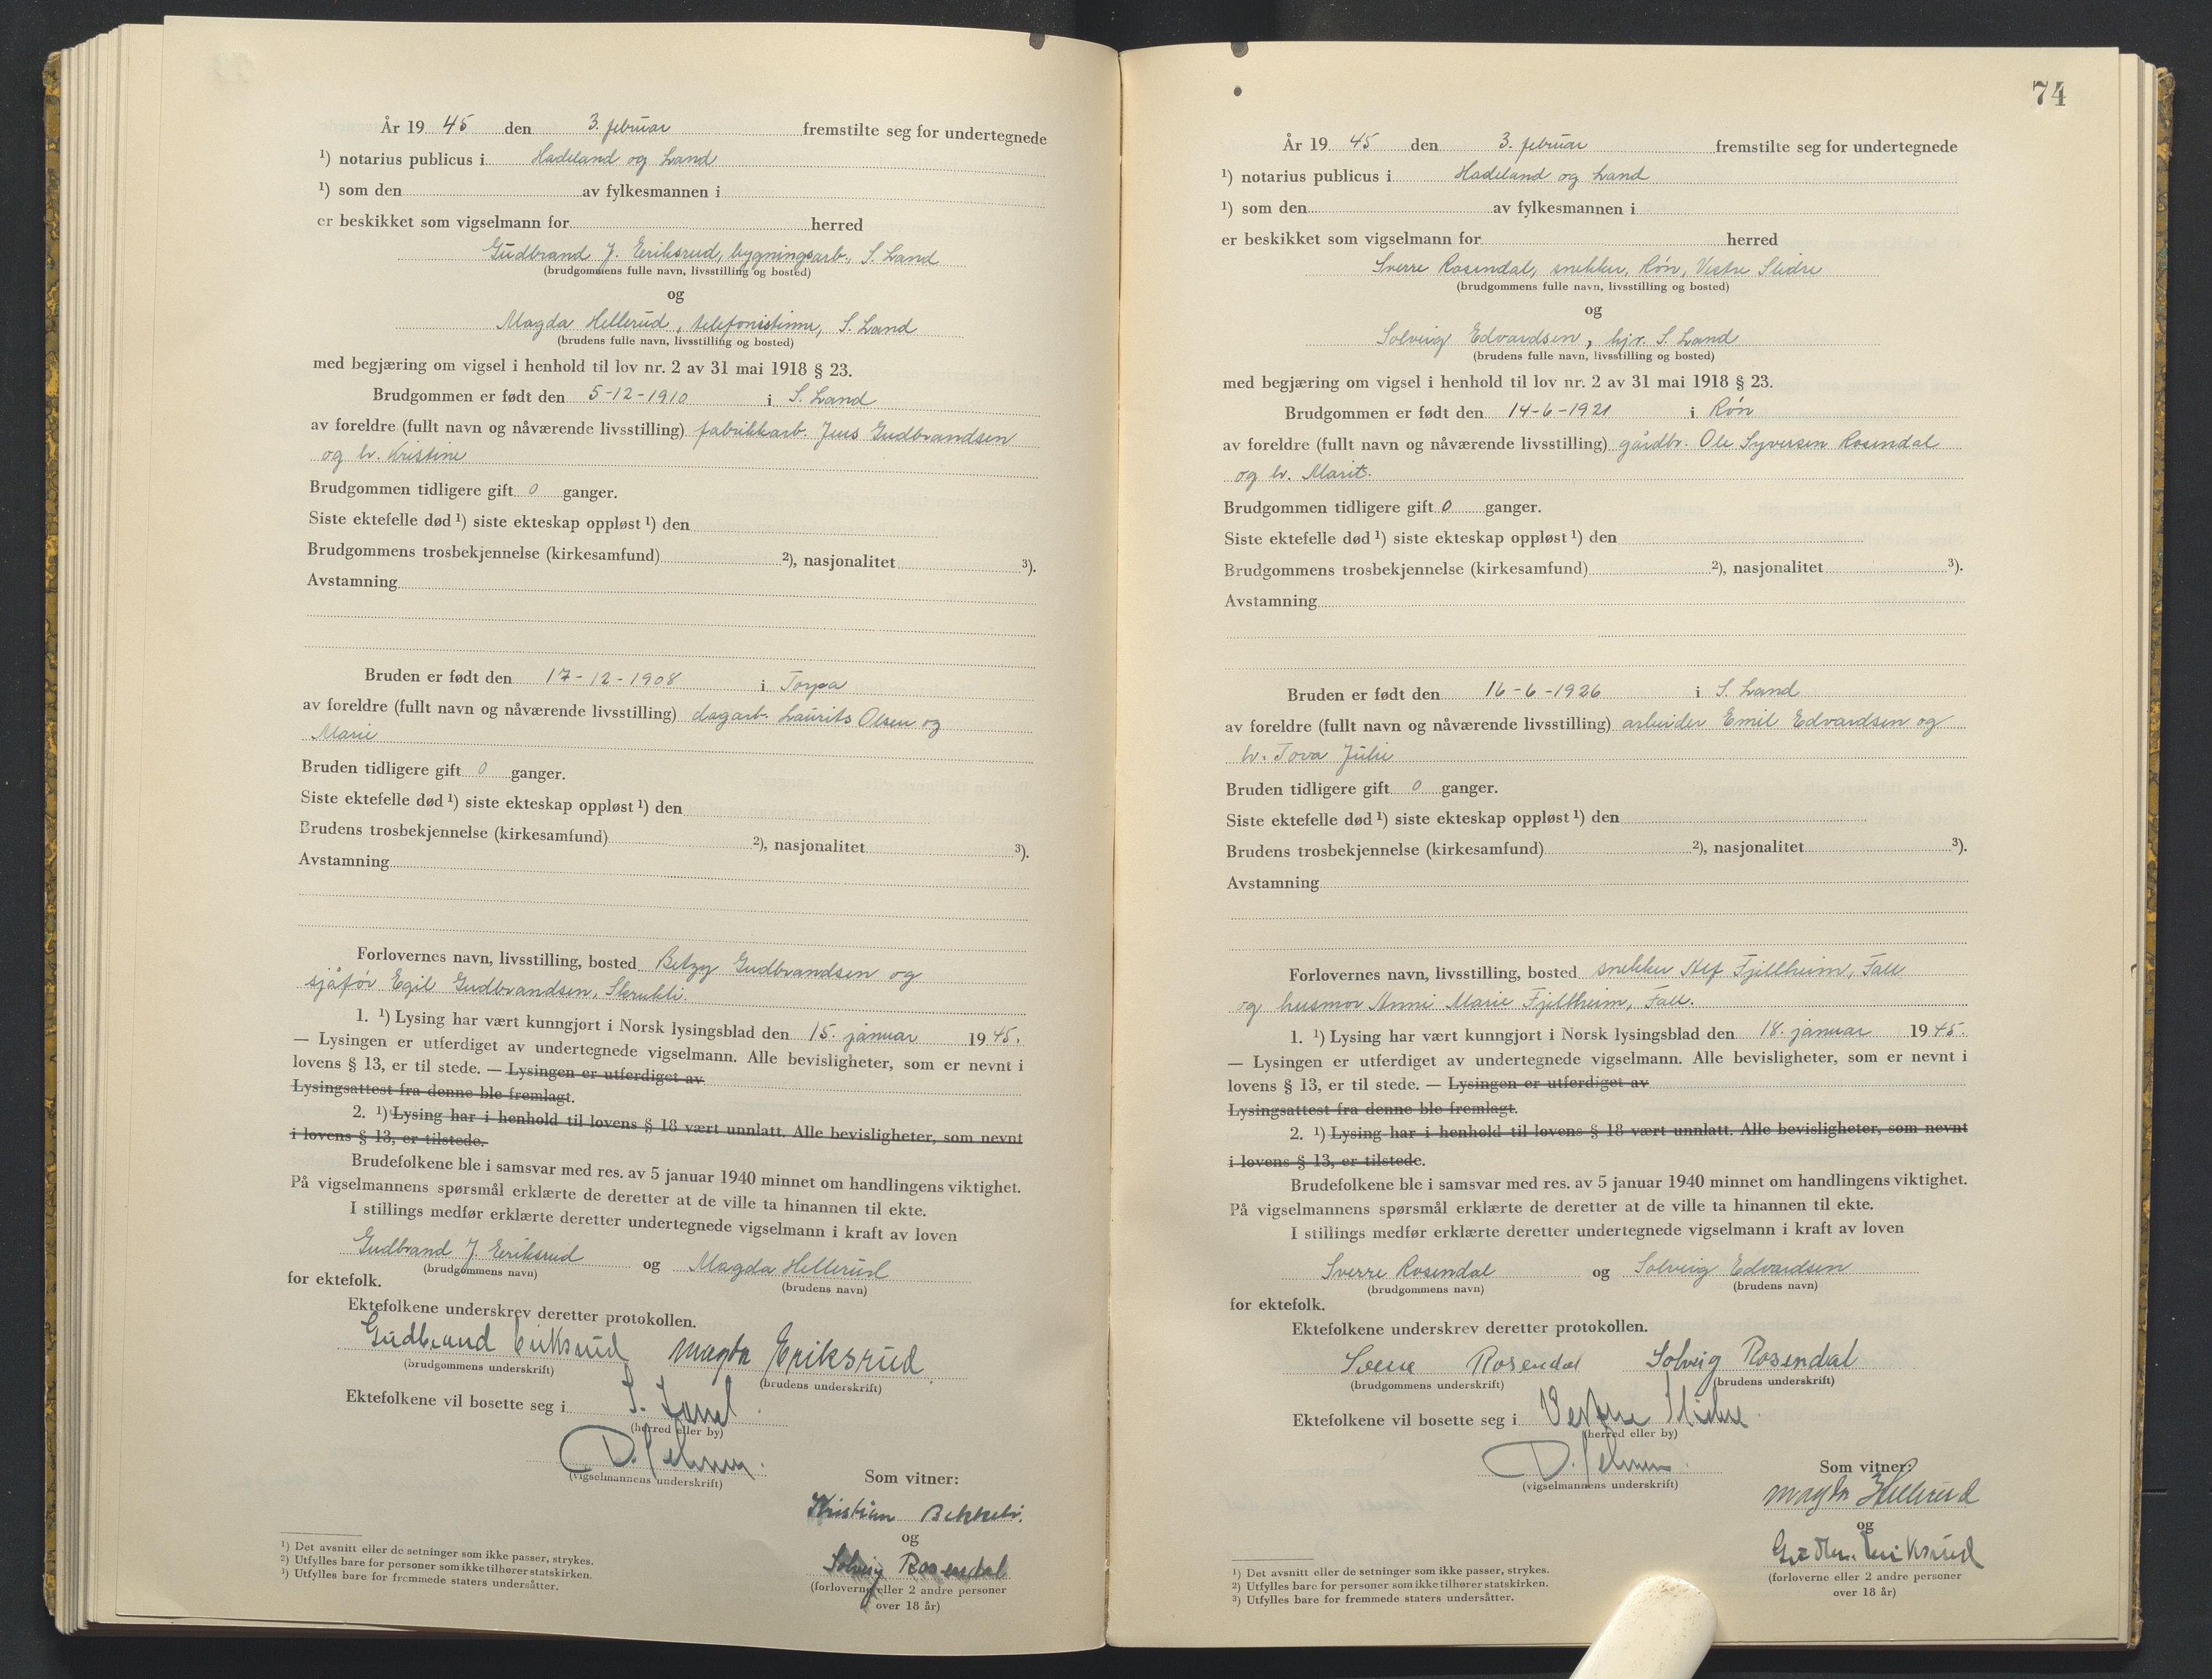 År 19 45 den 3. februar fremstilte seg for undertegnede
¹) notarius publicus i Hadeland og Land
¹) som den av fylkesmannen i
er beskikket som vigselmann for herred
Gudbrand J. Eriksrud, bygningsarb., S. Land
(brudgommens fulle navn, livsstilling og bosted)
og
Magda Hellerud, telefonistinne, S. Land
(brudens fulle navn, livsstilling og bosted)
med begjæring om vigsel i henhold til lov nr. 2 av 31 mai 1918 § 23.
Brudgommen er født den 5-12-1910 i S. Land
av foreldre (fullt navn og nåværende livsstilling) fabrikkarb. Jens Gudbrandsen
og h. Kristine
Brudgommen tidligere gift 0 ganger.
Siste ektefelle død ¹) siste ekteskap oppløst ¹) den
Brudgommens trosbekjennelse (kirkesamfund) ²), nasjonalitet ³).
Avstamning
Bruden er født den 17-12-1908 i Torpa
av foreldre (fullt navn og nåværende livsstilling) dagarb. Laurits Olsen og
Marie
Bruden tidligere gift 0 ganger.
Siste ektefelle død ¹) siste ekteskap oppløst ¹) den
Brudens trosbekjennelse (kirkesamfund) ²), nasjonalitet ³).
Avstamning
Forlovernes navn, livsstilling, bosted Betzy Gudbrandsen og
sjåfør Egil Gudbrandsen, Skrukli.
1. ¹) Lysing har vært kunngjort i Norsk lysingsblad den 15. januar 19 45.
— Lysingen er utferdiget av undertegnede vigselmann. Alle bevisligheter, som er nevnt i
lovens § 13, er til stede. — Lysingen er utferdiget av
Lysingsattest fra denne ble fremlagt.
2. ¹) Lysing har i henhold til lovens § 18 vært unnlatt. Alle bevisligheter, som nevnt
i lovens § 13, er tilstede.
Brudefolkene ble i samsvar med res. av 5 januar 1940 minnet om handlingens viktighet.
På vigselmannens spørsmål erklærte de deretter at de ville ta hinannen til ekte.
I stillings medfør erklærte deretter undertegnede vigselmann i kraft av loven
Gudbrand J. Eriksrud og Magda Hellerud
(brudgommens navn) (brudens navn)
for ektefolk.
Ektefolkene underskrev deretter protokollen.
Gudbrand Eriksrud Magda Eriksrud
(brudgommens underskrift) (brudens underskrift)
Ektefolkene vil bosette seg i S. Land
(herred eller by)
(vigselmannens underskrift)
Som vitner:
Kristian
og
Solveig Rosendal
(forloverne eller 2 andre personer
over 18 år)
¹) Det avsnitt eller de setninger som ikke passer, strykes.
²) Utfylles bare for personer som ikke tilhører statskirken.
³) Utfylles bare for fremmede staters undersåtter.
74
År 19 45 den 3. februar fremstilte seg for undertegnede
¹) notarius publicus i Hadeland og Land
¹) som den av fylkesmannen i
er beskikket som vigselmann for herred
Sverre Rosendal, snekker, Røn, Vestre Slidre
(brudgommens fulle navn, livsstilling og bosted)
og
Solveig Edvardsen, hjv. S. Land
(brudens fulle navn, livsstilling og bosted)
med begjæring om vigsel i henhold til lov nr. 2 av 31 mai 1918 § 23.
Brudgommen er født den 14-6-1921 i Røn
av foreldre (fullt navn og nåværende livsstilling) gårdbr. Ole Syversen Rosendal
og h. Marit.
Brudgommen tidligere gift 0 ganger.
Siste ektefelle død ¹) siste ekteskap oppløst ¹) den
Brudgommens trosbekjennelse (kirkesamfund) ²), nasjonalitet ³).
Avstamning
Bruden er født den 16-6-1926 i S. Land
av foreldre (fullt navn og nåværende livsstilling) arbeider Emil Edvardsen og
h. Tova Julie
Bruden tidligere gift 0 ganger.
Siste ektefelle død ¹) siste ekteskap oppløst ¹) den
Brudens trosbekjennelse (kirkesamfund) ²), nasjonalitet ³).
Avstamning
Forlovernes navn, livsstilling, bosted snekker Alf Fjellheim, Fall
og husmor Anni Marie Fjellheim, Fall.
1. ¹) Lysing har vært kunngjort i Norsk lysingsblad den 18. januar 19 45.
— Lysingen er utferdiget av undertegnede vigselmann. Alle bevisligheter, som er nevnt i
lovens § 13, er til stede. — Lysingen er utferdiget av
Lysingsattest fra denne ble fremlagt.
2. ¹) Lysing har i henhold til lovens § 18 vært unnlatt. Alle bevisligheter, som nevnt
i lovens § 13, er tilstede.
Brudefolkene ble i samsvar med res. av 5 januar 1940 minnet om handlingens viktighet.
På vigselmannens spørsmål erklærte de deretter at de ville ta hinannen til ekte.
I stillings medfør erklærte deretter undertegnede vigselmann i kraft av loven
Sverre Rosendal og Solveig Edvardsen
(brudgommens navn) (brudens navn)
for ektefolk.
Ektefolkene underskrev deretter protokollen.
Sverre Rosendal Solveig Rosendal
(brudgommens underskrift) (brudens underskrift)
Ektefolkene vil bosette seg i Vestre Slidre
(herred eller by)
(vigselmannens underskrift)
Som vitner:
Magda Hellerud
og
Eriksrud
(forloverne eller 2 andre personer
over 18 år)
¹) Det avsnitt eller de setninger som ikke passer, strykes.
²) Utfylles bare for personer som ikke tilhører statskirken.
³) Utfylles bare for fremmede staters undersåtter.